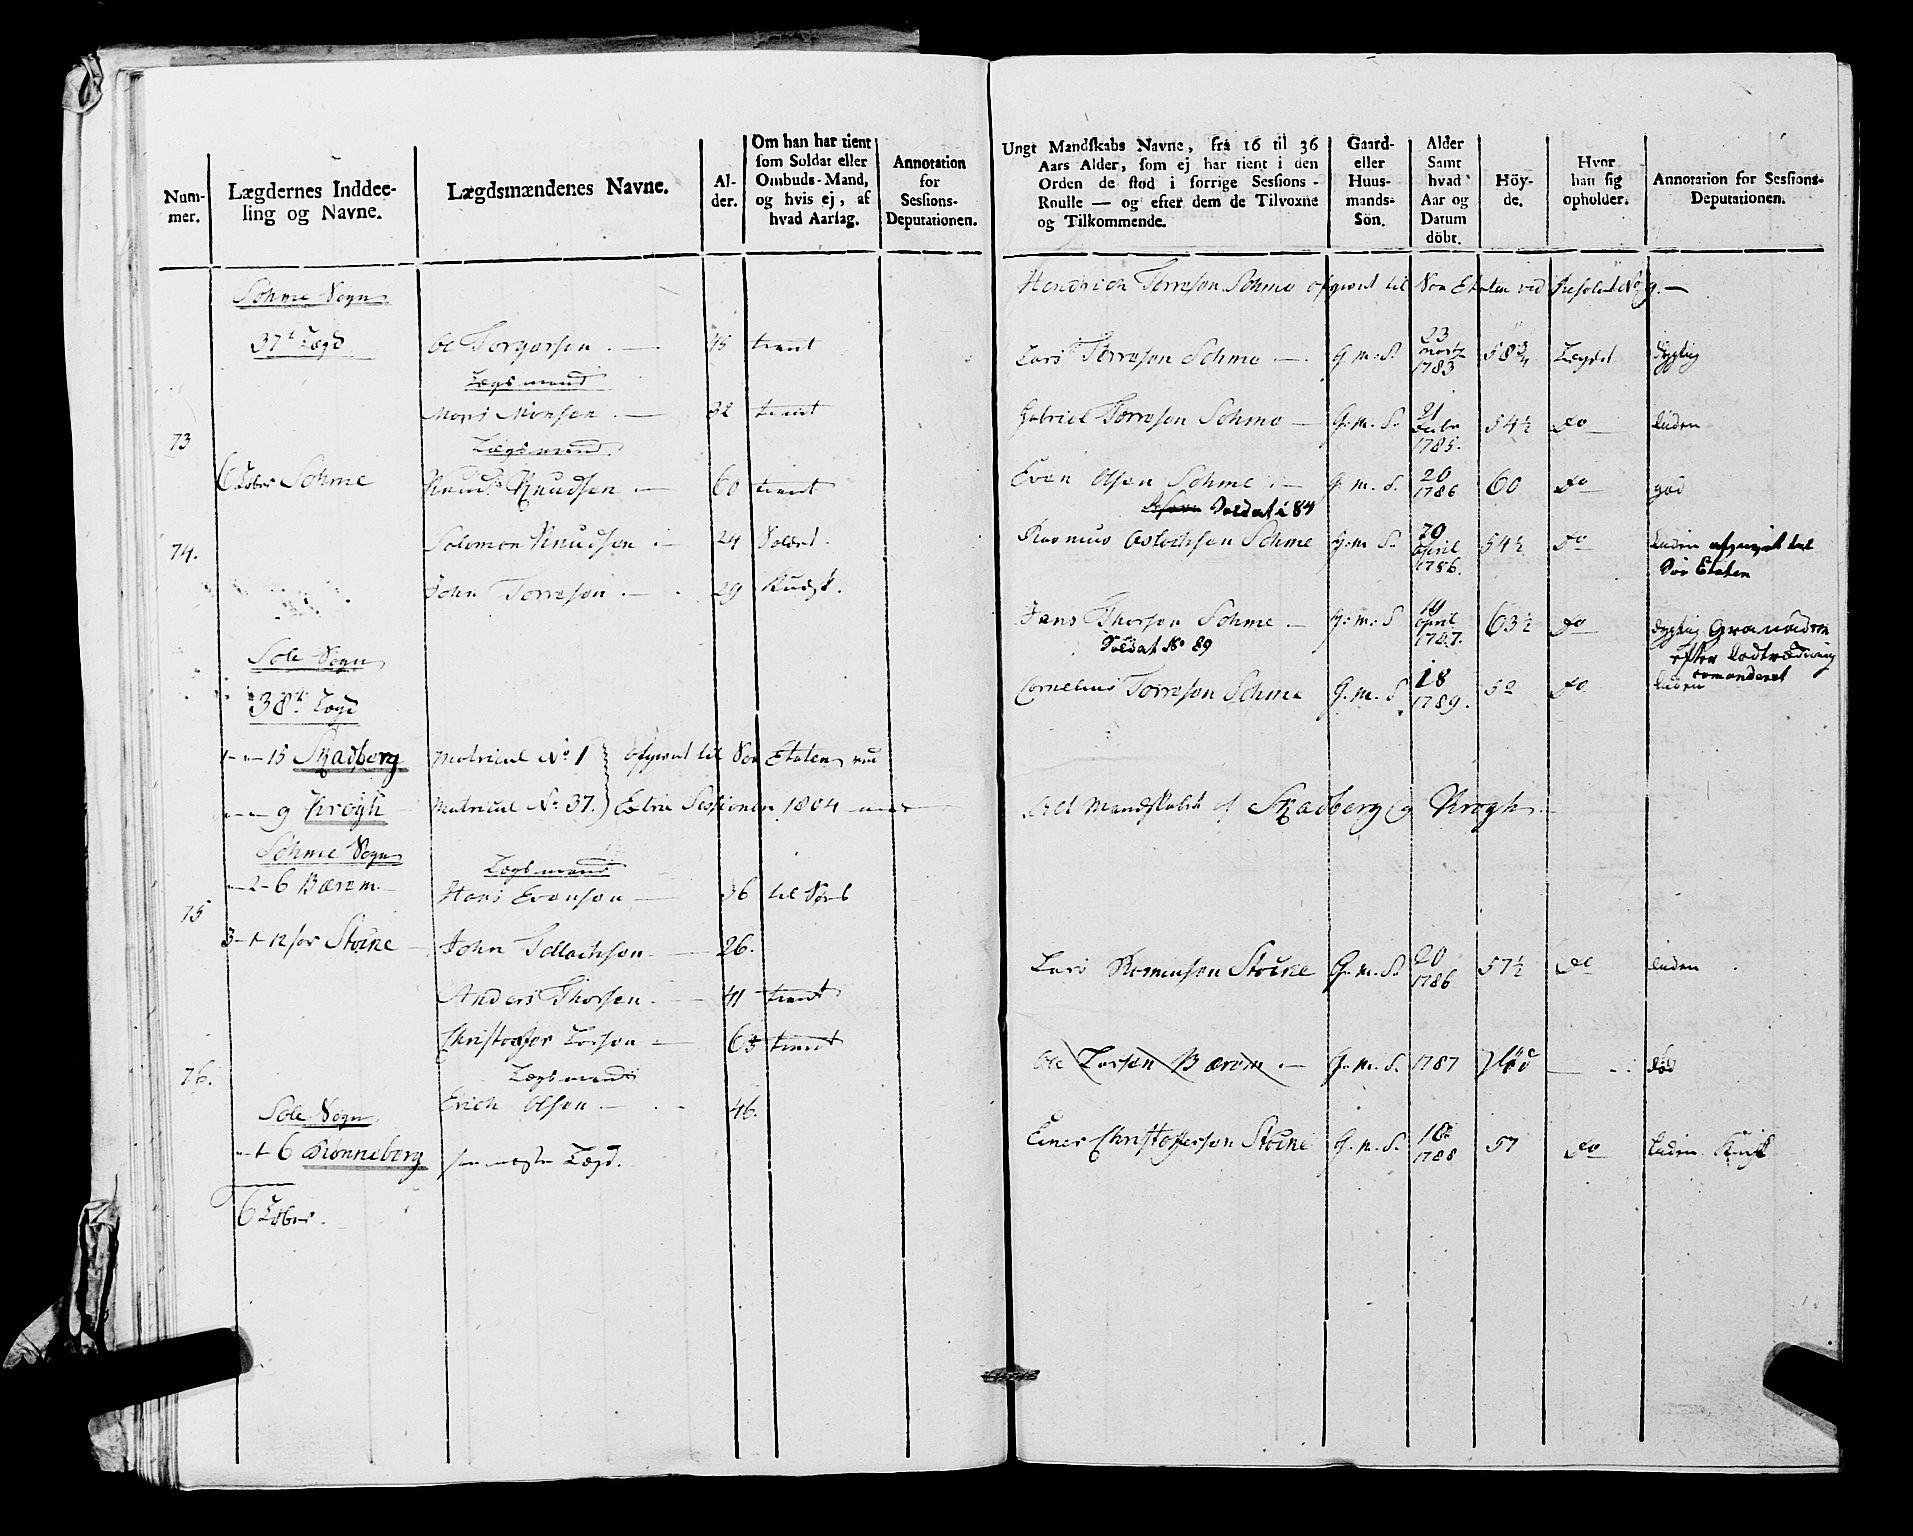 Num-
mer.
Lægdernes Inddee-
ling og Navne.
Lægdsmændenes Navne.
Al-
der.
Om han har tient
som Soldat eller
Ombuds-Mand,
og hvis ej, af
hvad Aarsag.
Annotation
for
Sessions-
Deputationen.
Söhme Sogn
37t Lægd
Ole Torgersen 45 tient
Lægsmand
Mons Monsen 32 tient
73
Lægsmand
6 Löber Söhme Knud Knudsen 60 tient
74. Solomon Knudsen 24 Soldat
John Torreson 29 Kudsk.
Sole Sogn
38t Lægd
1 - " - 15 Skadberg Matricul No 1 afgivet til Søe Etaten ved
" - " - 9 Krogh Matricul No 37. Extra Sessionen 1804
Söhme Sogn
Lægsmand
" - 2 - 6 Bærem Hans Evensen 36 til Søes
75
3 - 1 - 12 for Stoine John Tollachsen 26.
Anders Thorsen 41 tient
Christopher Larsen 63 tient
76. Lægsmand
Erich Olson 46.
Sole Sogn
" - 1 - 6 Rönneberg see næste Lægd.
6 Löber.
Ungt Mandskabs Navne, fra 16 til 36
Aars Alder, som ej har tient i den
Orden de stod i forrige Sessions-
Roulle — og efter dem de Tilvoxne
og Tilkommende.
Gaard-
eller
Huus-
mands-
Sön.
Alder
Samt
hvad
Aar og
Datum
döbt.
Höy-
de.
Hvor
han sig
opholder.
Annotation for Sessions-
Deputationen.
Hendrich Torreson Söhme afgivet til Søe Etaten ved
Lars Torreson Sohme G. M. S. 23 Martz 1783 58 3/4 Lægdet dygtig
Gabriel Torreson Sohme G. M. S. 21 1785. 54 1/2 Do liden
Even Olsen Sohme G. M. S. 20 1786 60 Do god
Soldat i 84
Rasmus Aslachsen Sohme G. M. S. 20 April 1786. 54 1/2 Do liden afgivet til
Søe Etaten
Jens Thorson Sohme G. M. S. 19 April 1787. 63 1/2 Do dygtig Granadeer
Soldat No 89 efter Lodtrædning
comanderet
Cornelius Torreson Sohme G. M. S. 18 1789. 50 Do liden
Alt Mandskabet af Skadberg og Krogh
Lars Rasmusen Stoine G. M. S. 20 1786 57 1/2 Do liden
Ole Larsen Bærem G. M. S. 1787 död
Einer Christopherson Stoine G. M. S. 18 1788 57 Do liden